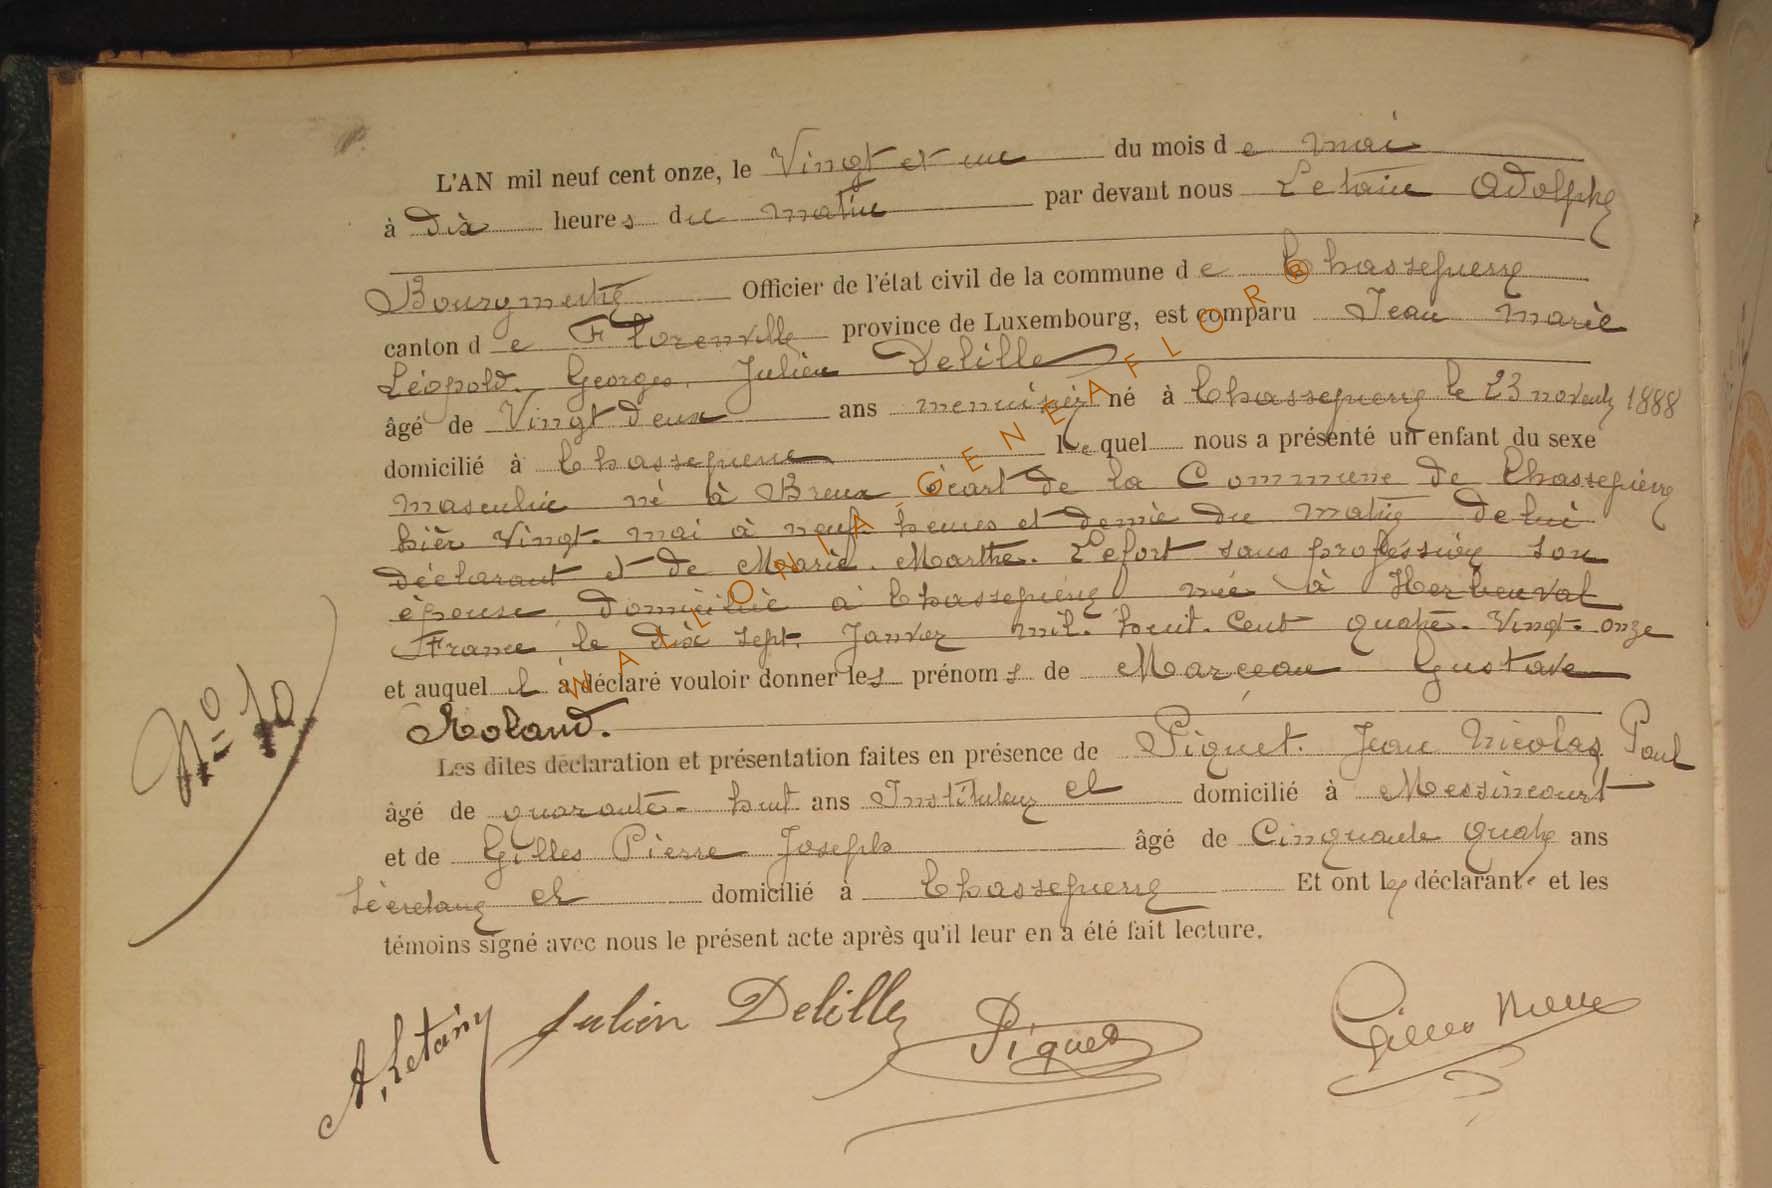 L'AN mil neuf cent onze, le Vingt et un du mois de mai
à dix heures du matin par devant nous Letain Adolphe
Bourgmestre Officier de l'état civil de la commune de Chassepierre
canton de Florenville province de Luxembourg, est comparu Jean Marie
Léopold. Georges. Julien Delille
âgé de Vingt deux ans menuisier né à Chassepierre le 23 novemb 1888
domicilié à Chassepierre Lequel nous a présenté un enfant du sexe
masculin né à Breux écart de la Commune de Chassepierre
hier Vingt. mai à neuf heures et demie du matin de lui
déclarant et de Marie. Marthe. Lefort sans profession son
épouse domiciliée à Chassepierre née à Herbeuval
France le dix sept. Janvier mil. huit. Cent quatre. Vingt. onze
et auquel il a déclaré vouloir donner les prénoms de Marceau Gustave
Roland.
N° 10
Les dites déclaration et présentation faites en présence de Piquet. Jean Nicolas Paul
âgé de quarante. huit ans Instituteur et domicilié à Messincourt
et de Gilles Pierre Joseph âgé de Cinquante quatre ans
et domicilié à Chassepierre Et ont les déclarant et les
témoins signé avec nous le présent acte après qu'il leur en a été fait lecture.
A. Letain Julien Delille Piquet Gilles Pierre
WALLONIA-GENEAFLOR®